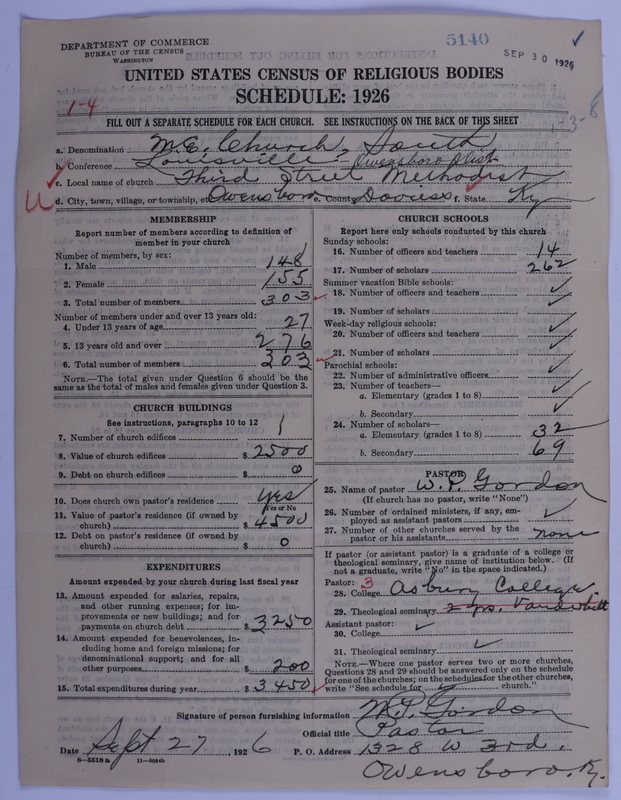 DEPARTMENT OF COMMERCE
BUREAU OF THE CENSUS
WASHINGTON
5140
SEP 30 1926
UNITED STATES CENSUS OF RELIGIOUS BODIES
SCHEDULE: 1926
1-4
FILL OUT A SEPARATE SCHEDULE FOR EACH CHURCH. SEE INSTRUCTIONS ON THE BACK OF THIS SHEET
a. Denomination M.E. Church, South
b. Conference Louisville - Owensboro Dist.
c. Local name of church Third Street Methodist
d. City, town, village, or township, etc. Owensboro e. County Daviess f. State Ky
MEMBERSHIP
Report number of members according to definition of
member in your church
Number of members, by sex:
1. Male 148
2. Female 155
3. Total number of members 303
Number of members under and over 13 years old:
4. Under 13 years of age 27
5. 13 years old and over 276
6. Total number of members 303
NOTE.—The total given under Question 6 should be the
same as the total of males and females given under Question 3.
CHURCH BUILDINGS
See instructions, paragraphs 10 to 12
7. Number of church edifices 1
8. Value of church edifices $ 2500
9. Debt on church edifices $ 0
10. Does church own pastor's residence yes
Yes or No
11. Value of pastor's residence (if owned by
church) $ 4500
12. Debt on pastor's residence (if owned by
church) $ 0
EXPENDITURES
Amount expended by your church during last fiscal year
13. Amount expended for salaries, repairs,
and other running expenses; for im-
provements or new buildings; and for
payments on church debt $ 3250
14. Amount expended for benevolences, in-
cluding home and foreign missions; for
denominational support; and for all
other purposes $ 200
15. Total expenditures during year $ 3450
CHURCH SCHOOLS
Report here only schools conducted by this church
Sunday schools:
16. Number of officers and teachers 14
17. Number of scholars 262
Summer vacation Bible schools:
18. Number of officers and teachers ✓
19. Number of scholars ✓
Week-day religious schools:
20. Number of officers and teachers ✓
21. Number of scholars ✓
Parochial schools:
22. Number of administrative officers ✓
23. Number of teachers—
a. Elementary (grades 1 to 8) ✓
b. Secondary ✓
24. Number of scholars—
a. Elementary (grades 1 to 8) 32
b. Secondary 69
PASTOR
25. Name of pastor W. P. Gordon
(If church has no pastor, write "None")
26. Number of ordained ministers, if any, em-
ployed as assistant pastors ✓
27. Number of other churches served by the
pastor or his assistants none
If pastor (or assistant pastor) is a graduate of a college or
theological seminary, give name of institution below. (If
not a graduate, write "No" in the space indicated.)
Pastor: 3
28. College Asbury College
29. Theological seminary 2 yrs. Vanderbilt
Assistant pastor:
30. College ✓
31. Theological seminary ✓
NOTE.—Where one pastor serves two or more churches,
Questions 28 and 29 should be answered only on the schedule
for one of the churches; on the schedules for the other churches,
write "See schedule for church."
Signature of person furnishing information W. P. Gordon
Official title Pastor
Date Sept 27, 1926 P. O. Address 1328 W 3rd,
8-5518 a
Owensboro, Ky.